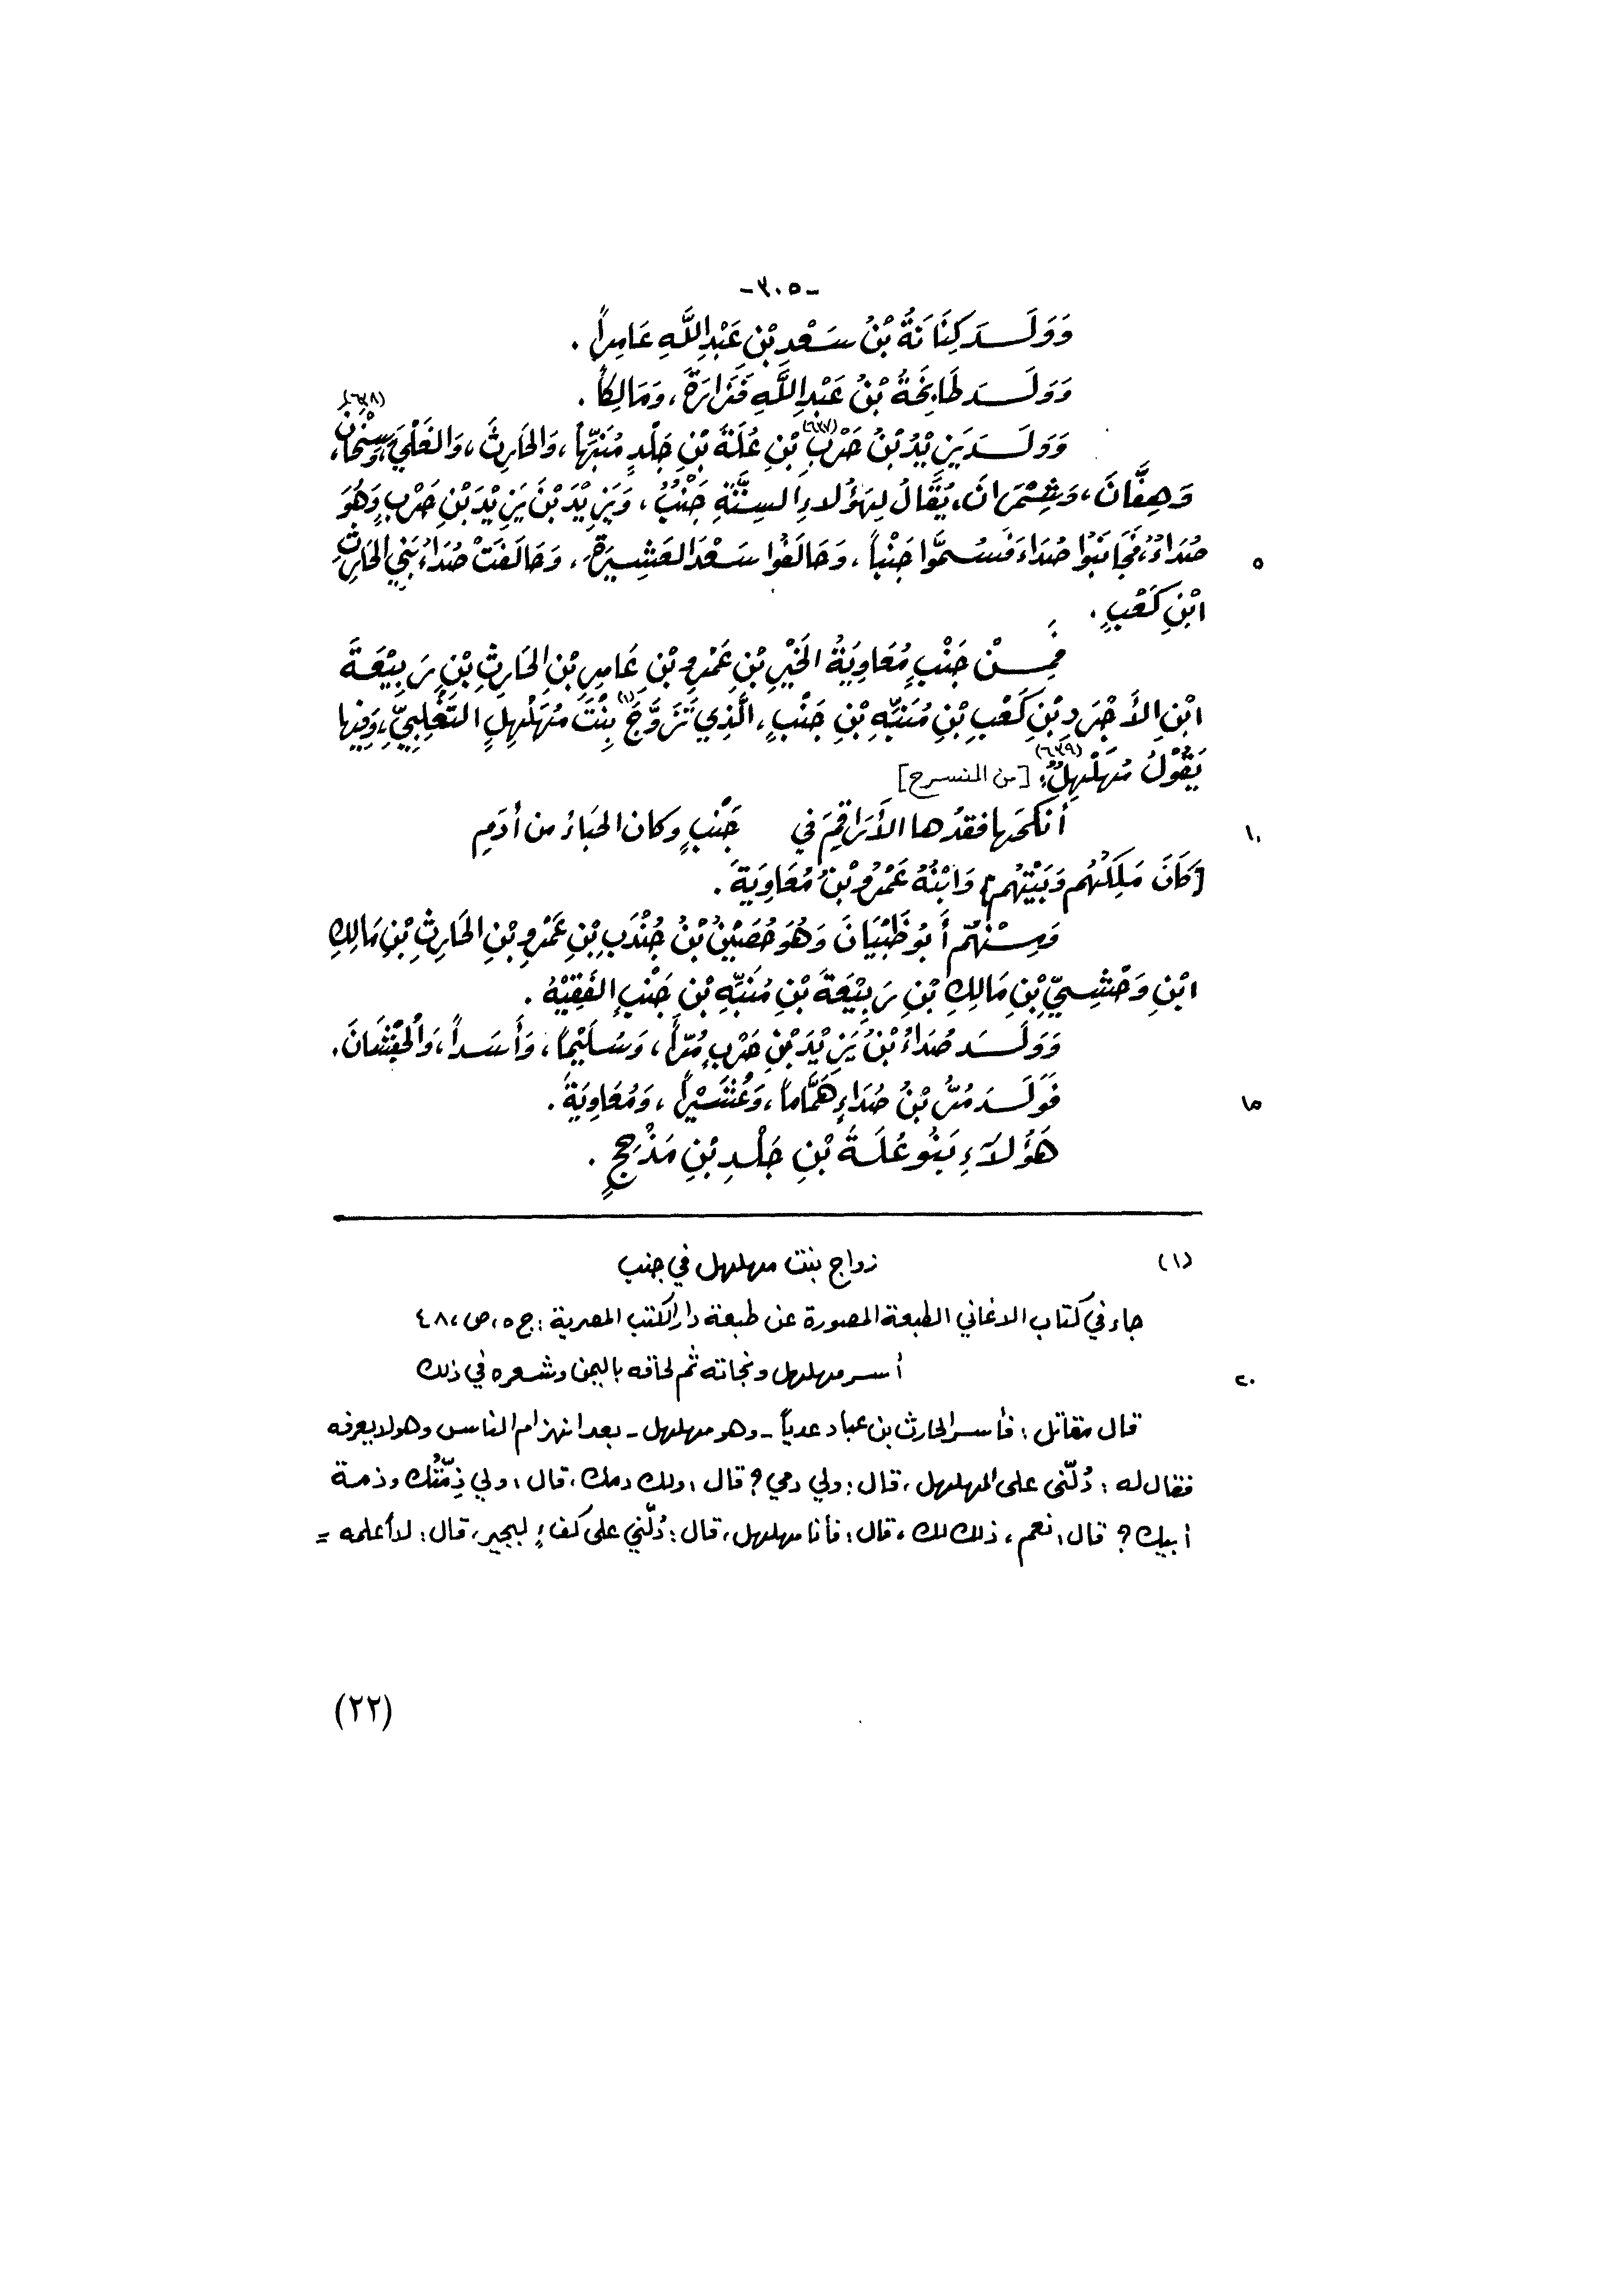 -٣٠٥-
وَوَلَدَ كِنَانَةُ بْنُ سَعْدِ بْنِ عَبْدِ اللَّهِ عَامِراً .
وَوَلَدَ طَابِخَةُ بْنُ عَبْدِ اللَّهِ فَزَارَةَ ، وَمَالِكاً .
وَوَلَدَ يَزِيْدُ بْنُ حَرْبِ (٦٣٧) بْنِ عُلَةَ بْنِ جَلْدٍ مُنَبِّهاً ، وَالحَارِثَ ، وَالغَلْيَ ، وَسِنْحَانَ (٦٣٨) ،
وَهِفَّانَ ، وَشِمْرَانَ ، يُقَالُ لِهَؤُلاءِ السِتَّةِ جَنْبٌ ، وَيَزِيْدَ بْنَ يَزِيْدَ بْنِ حَرْبٍ وَهُوَ
صُدَاءُ ، فَجَانَبُوا صُدَاءَ فَسُمُّوا جَنْباً ، وَحَالَفُوا سَعْدَ العَشِيرَةِ ، وَحَالَفَتْ صُدَاءُ بَنِي الحَارِثِ ٥
ابْنِ كَعْبٍ .
فَمِنْ جَنْبٍ مُعَاوِيَةُ الخَيْرِ بْنِ عَمْرِو بْنِ عَامِرِ بْنِ الحَارِثِ بْنِ رَبِيْعَةَ
ابْنِ الأَجْرَدِ بْنِ كَعْبِ بْنِ مُنَبِّهِ بْنِ جَنْبٍ ، الَّذِي تَزَوَّجَ (١) بِنْتَ مُهَلْهِلٍ التَغْلِبِيِّ ، وَفِيها
يَقُوْلُ مُهَلْهِلٌ (٦٣٩) : [من المنسرح]
أنكحَها فقدُها الأَرَاقِمَ في جَنْبٍ وكان الحِبَاءُ من أَدَمِ ١٠
[كَانَ مَلِكَهُم وَبَيْتَهُم] وَابْنُهُ عَمْرُو بْنُ مُعَاوِيَةَ .
وَمِنْهُم أَبُو ظَبْيَانَ وَهُوَ حُصَيْنُ بْنُ جُنْدَبِ بْنِ عَمْرِو بْنِ الحَارِثِ بْنِ مَالِكِ
ابْنِ وَحْشِيِّ بْنِ مَالِكِ بْنِ رَبِيْعَةَ بْنِ مُنَبِّهِ بْنِ جَنْبٍ الفَقِيْهُ .
وَوَلَدَ صُدَاءُ بْنُ يَزِيْدَ بْنِ حَرْبٍ مُرّاً ، وَسُلَيْماً ، وَأَسَداً ، وَالحِيْشَانَ .
فَوَلَدَ مُرُّ بْنُ صُدَاءٍ هَمَّاماً ، وَعُنْسَيْراً ، وَمُعَاوِيَةَ . ١٥
هَؤُلاَءِ بَنُو عُلَةَ بْنِ جَلْدِ بْنِ مَذْحِجٍ .
(١) زواج بنت مهلهل في جنب
جاء في كتاب الاغاني الطبعة المصورة عن طبعة دار الكتب المصرية : ج ٥ ، ص ، ٤٨
أسر مهلهل ونجاته ثم لحاقه باليمن وشعره في ذلك ٢٠
قال مقاتل : فأسر الحارث بن عباد عدياً - وهو مهلهل - بعد انهزام الناس وهو لا يعرفه
فقال له : دُلّني على المهلهل ، قال : ولي دمي ؟ قال : ولك دمك ، قال : ولي ذِمّتُك وذمة
أبيك ؟ قال : نعم ، ذلك لك ، قال : فأنا مهلهل ، قال : دُلّني على كفءٍ لبجير ، قال : لا أعلمه =
(٢٢)